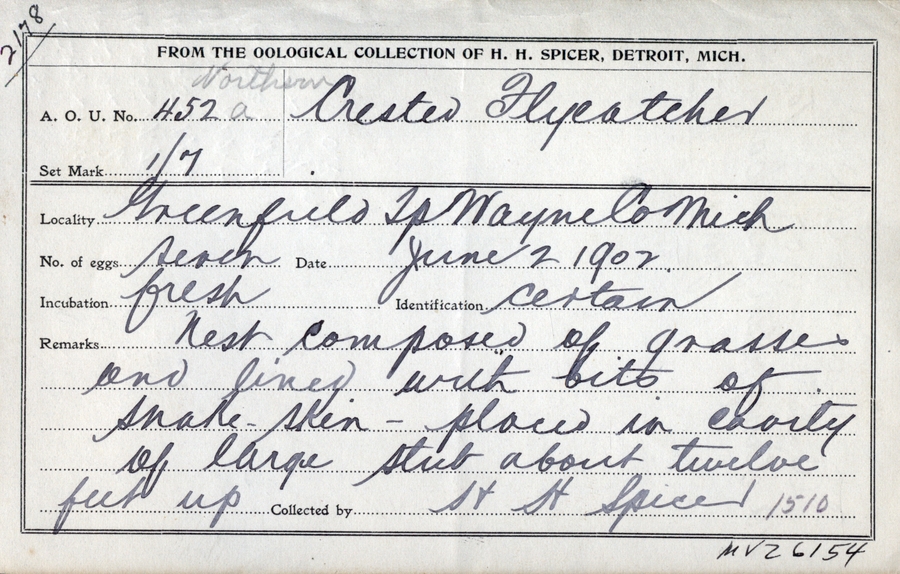 2178
FROM THE OOLOGICAL COLLECTION OF H. H. SPICER, DETROIT, MICH.
Northern
A. O. U. No. 452 a Crested Flycatcher
Set Mark 1/7
Locality Greenfield Tp Wayne Co Mich
No. of eggs seven Date June 2 1902
Incubation fresh Identification certain
Remarks Nest composed of grasses
and lined with bits of
snake-skin - placed in cavity
of large stub about twelve
feet up Collected by H H Spicer 1510
MVZ 6154